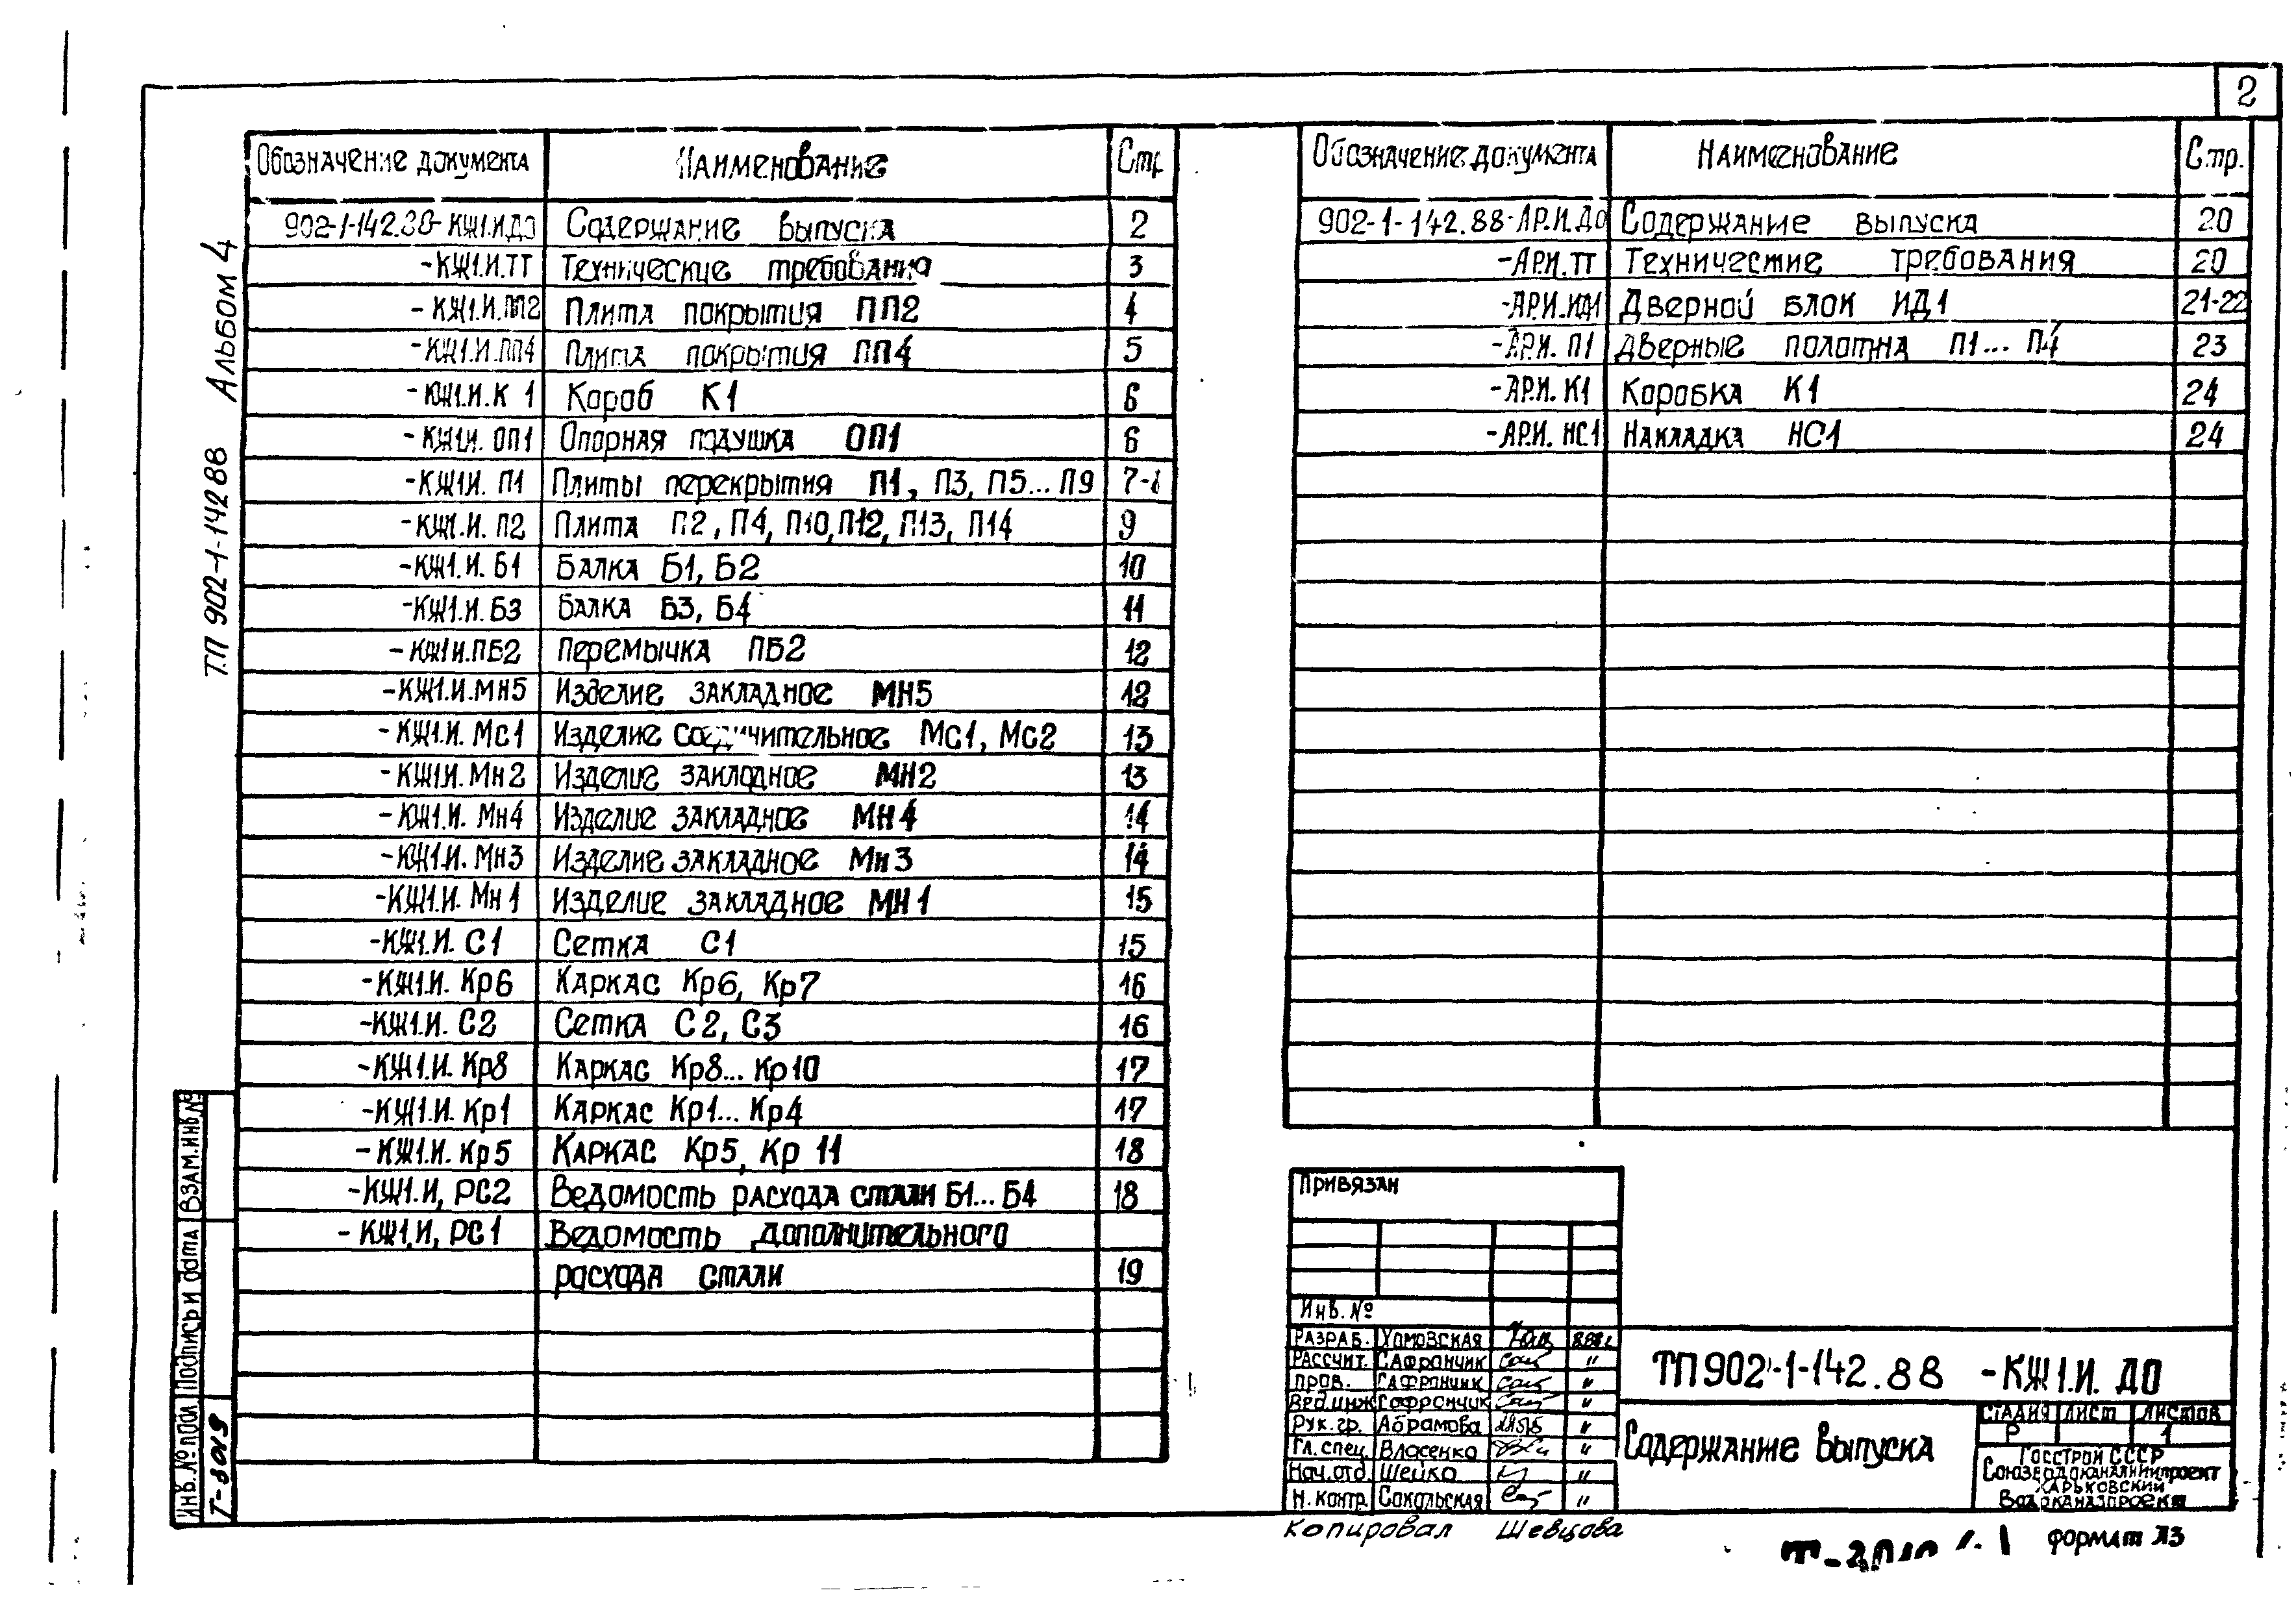 2
ТП 902-1-142 88 Альбом 4
Обозначение документа Наименование Стр
902-1-142.88-КЖ1.И.ДО Содержание выпуска 2
-КЖ1.И.ТТ Технические требования 3
-КЖ1.И.ПП2 Плита покрытия ПП2 4
-КЖ1.И.ПП4 Плита покрытия ПП4 5
-КЖ1.И.К 1 Короб К1 6
-КЖ1.И. ОП1 Опорная подушка ОП1 6
-КЖ1И. П1 Плиты перекрытия П1, П3, П5... П9 7-8
-КЖ1.И. П2 Плита П2, П4, П10, П12, П13, П14 9
-КЖ1.И. Б1 Балка Б1, Б2 10
-КЖ1.И. Б3 Балка Б3, Б4 11
-КЖ1И.ПБ2 Перемычка ПБ2 12
-КЖ1.И.МН5 Изделие закладное МН5 12
-КЖ1.И. Мс1 Изделие соединительное Мс1, Мс2 13
-КЖ1И. Мн2 Изделие закладное МН2 13
-КЖ1.И. Мн4 Изделие закладное МН4 14
-КЖ1.И. Мн3 Изделие закладное Мн3 14
-КЖ1.И. Мн1 Изделие закладное МН1 15
-КЖ1.И. С1 Сетка С1 15
-КЖ1.И. Кр6 Каркас Кр6, Кр7 16
-КЖ1.И. С2 Сетка С2, С3 16
-КЖ1.И. Кр8 Каркас Кр8... Кр10 17
-КЖ1.И. Кр1 Каркас Кр1... Кр4 17
-КЖ1.И. Кр5 Каркас Кр5, Кр 11 18
-КЖ1.И, РС2 Ведомость расхода стали Б1... Б4 18
-КЖ1,И, РС1 Ведомость дополнительного
расхода стали 19
Обозначение документа Наименование Стр.
902-1-142.88-АР.И.ДО Содержание выпуска 20
-АР.И.ТТ Техничестие требования 20
-АР.И.ИД1 Дверной блок ИД1 21-22
-АР.И. П1 Дверные полотна П1... П4 23
-АР.И. К1 Коробка К1 24
-АР.И. НС1 Накладка НС1 24
Привязан
Инв. №
Разраб. Хомовская
Рассчит. Сафрончик "
Пров. Сафрончик "
Вед.инж Сафрончик "
Рук. гр. Абрамова "
Гл. спец. Власенко "
Нач. отд. Шейко "
Н. контр. Сокольская "
ТП 902-1-142.88 -КЖ1.И. ДО
Содержание выпуска
Стадия Лист Листов
Р 1
Госстрой СССР
Союзводоканалниипроект
Харьковский
Водоканалпроект
Копировал Шевцова
формат А3
Инв. № подл Подпись и дата Взам. инв №
Т-8019